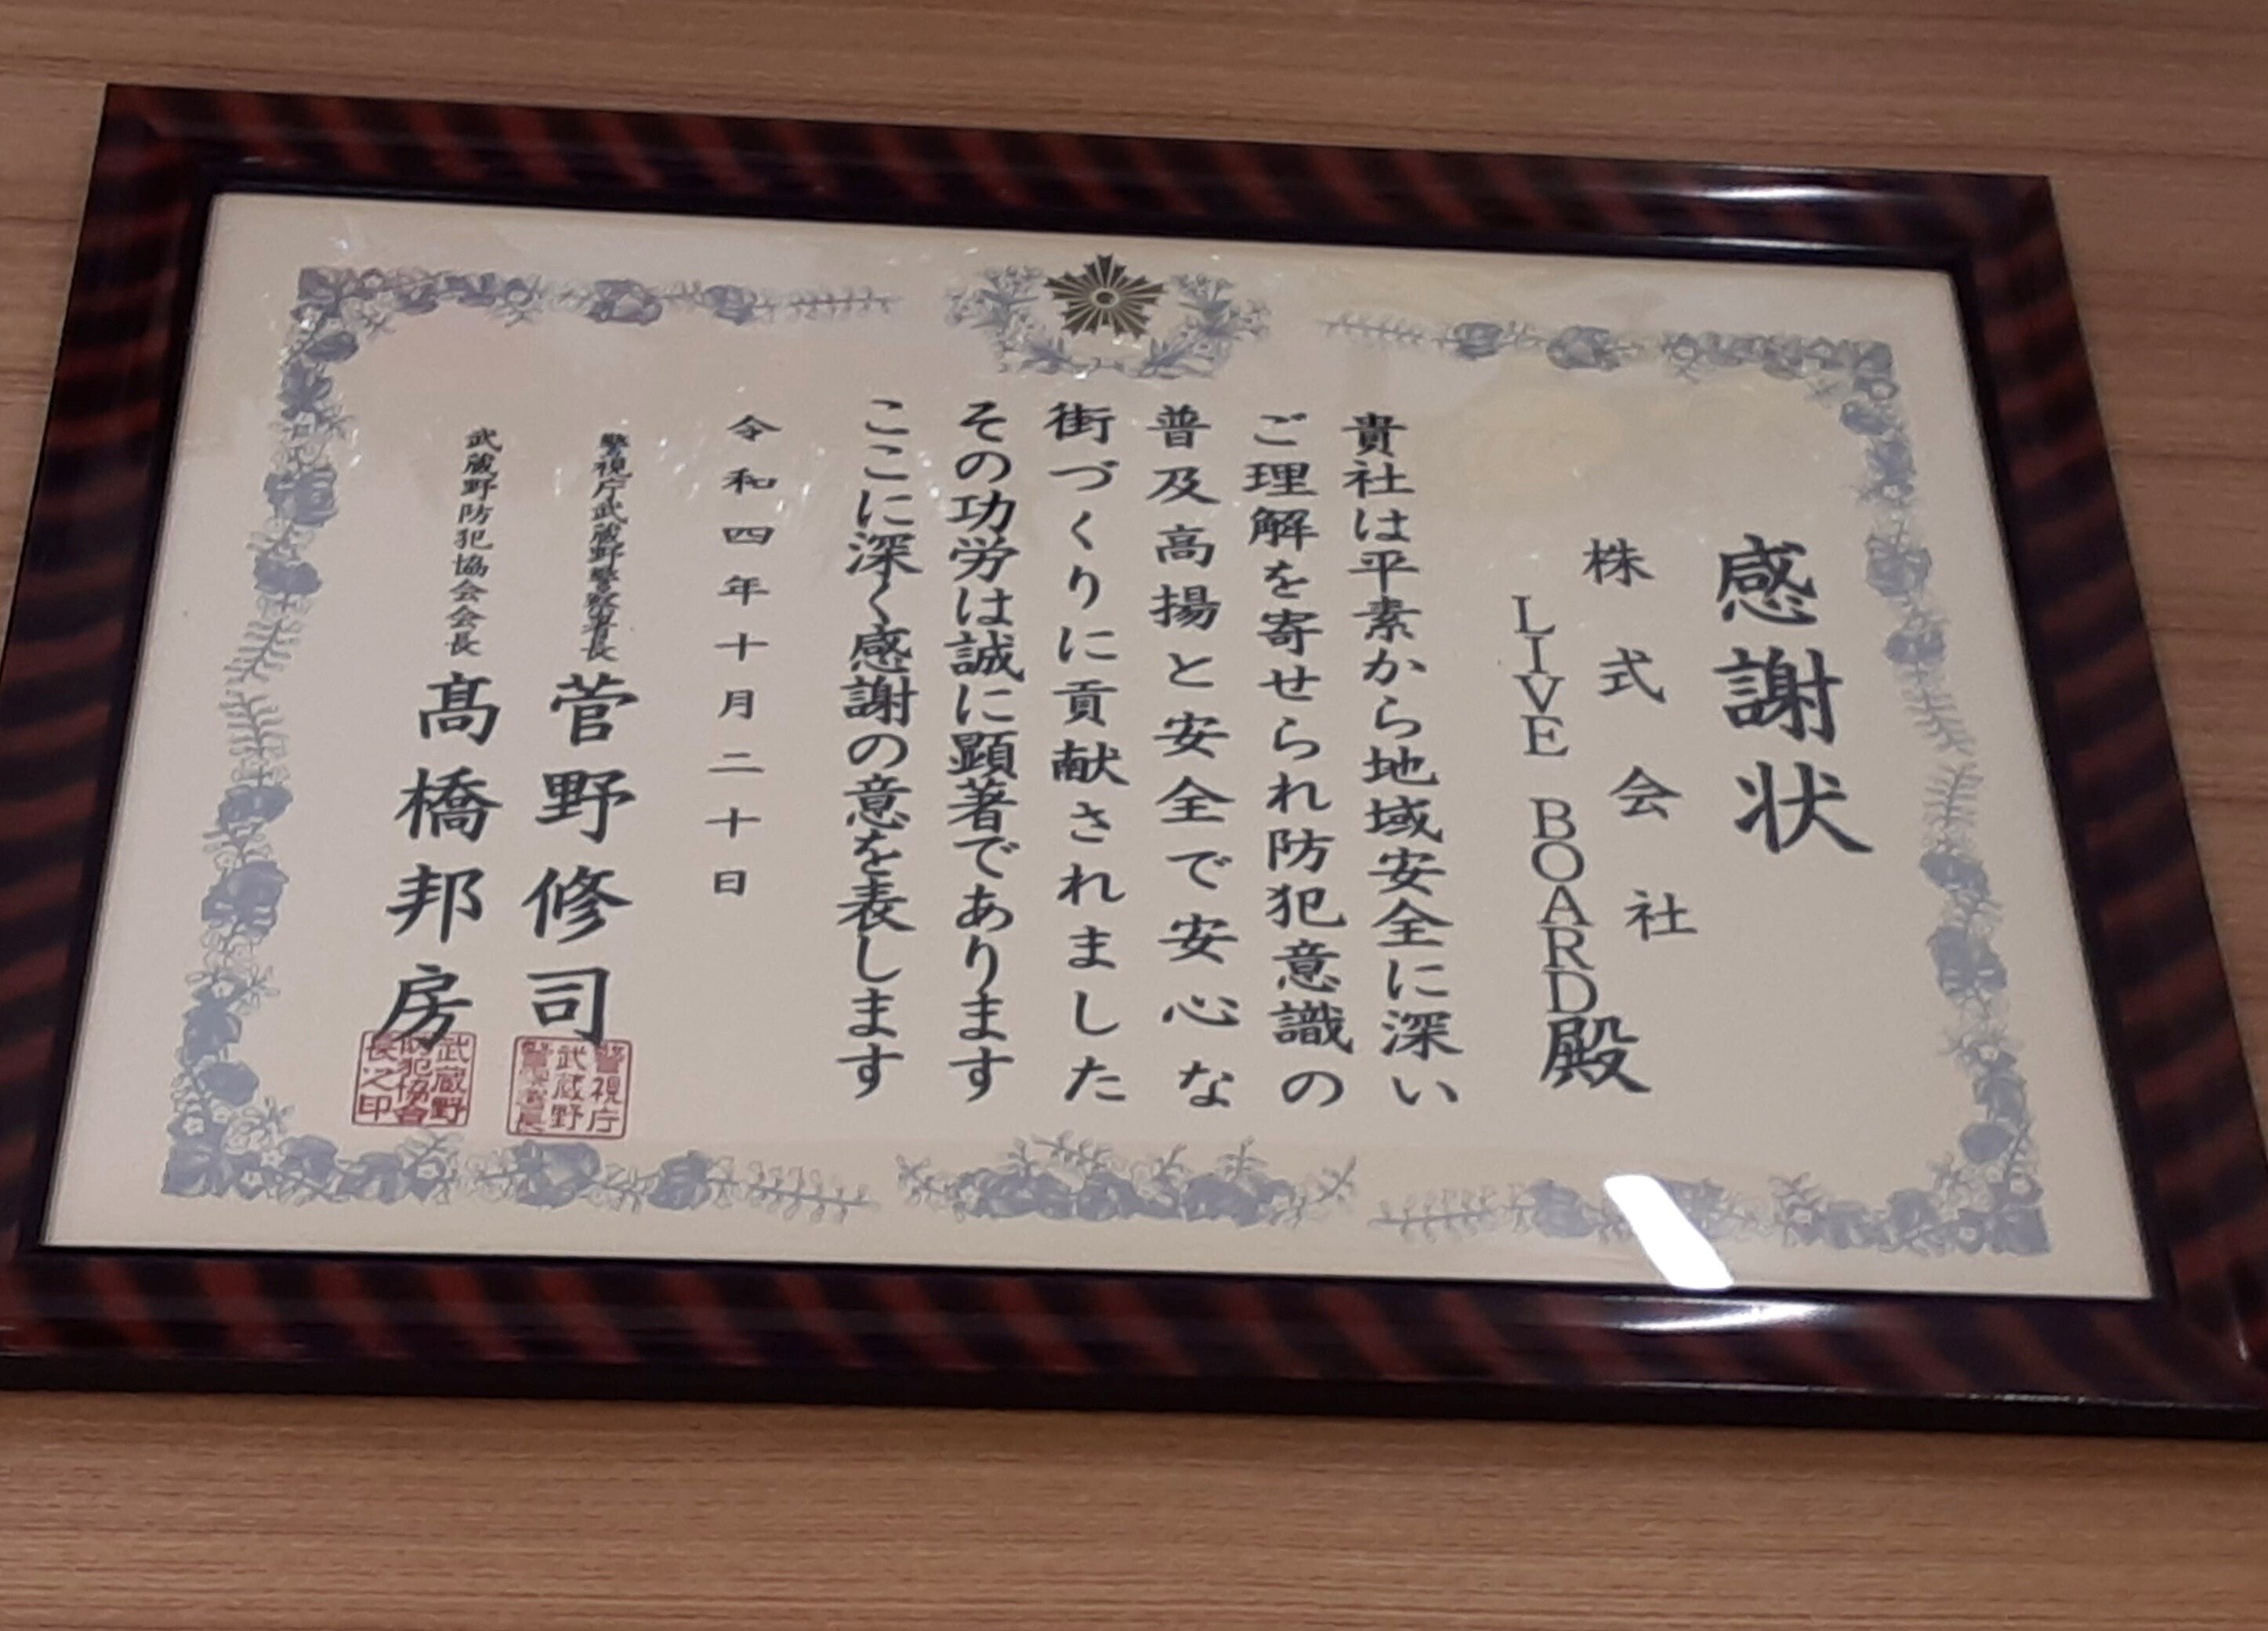 感謝状
株式会社
LIVE BOARD殿
貴社は平素から地域安全に深い
ご理解を寄せられ防犯意識の
普及高揚と安全で安心な
街づくりに貢献されました
その功労は誠に顕著であります
ここに深く感謝の意を表します
令和四年十月二十日
警視庁武蔵野警察署長 菅野修司
警視庁武蔵野警察署長
武蔵野防犯協会会長 髙橋邦房
武蔵野防犯協会長之印